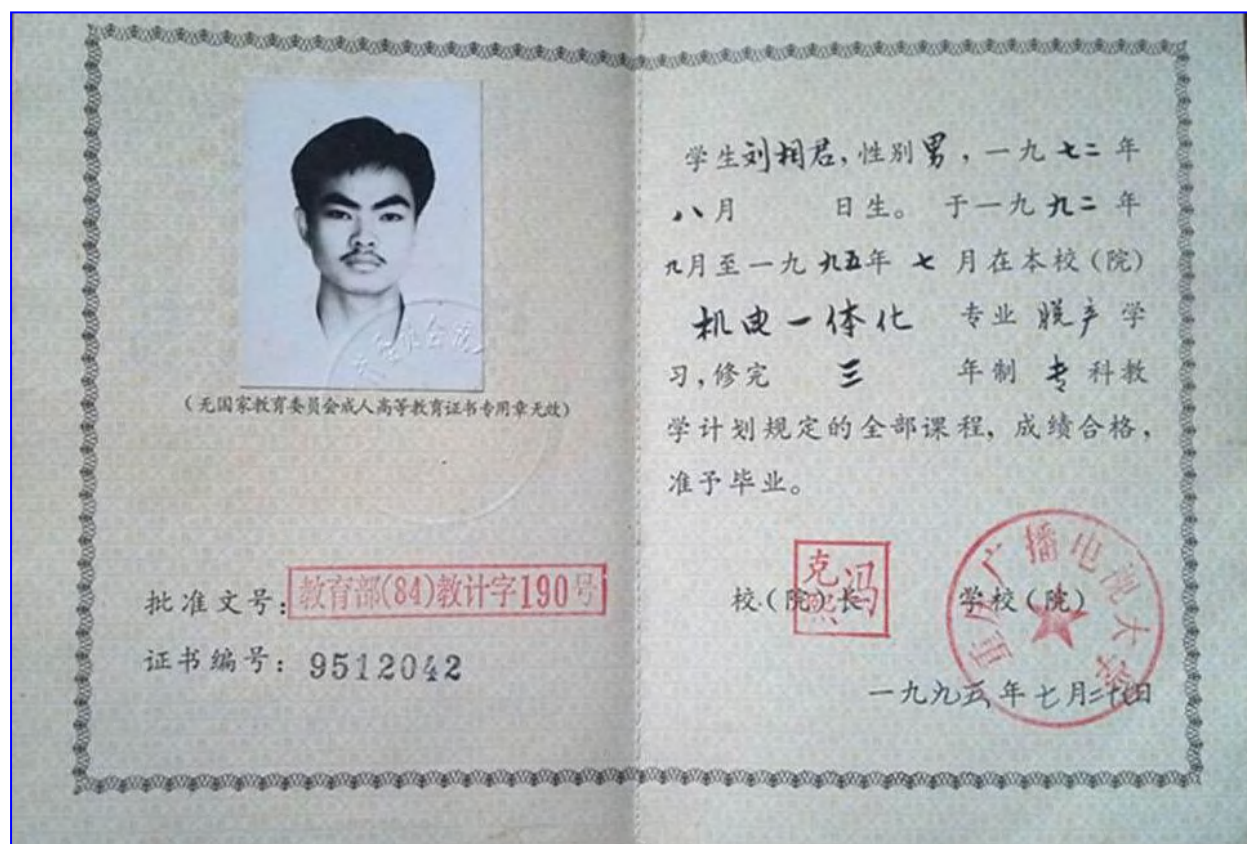 (无国家教育委员会成人高等教育证书专用章无效)
批准文号:教育部(84)教计字190号
证书编号:9512042
学生刘相君,性别男,一九七二年
八月 日生。于一九九二年
九月至一九九五年七月在本校(院)
机电一体化 专业 脱产 学
习,修完 三 年制 专 科教
学计划规定的全部课程,成绩合格,
准予毕业。
校(院)长 冯克熙
学校(院)
重庆广播电视大学
一九九五年七月二十日